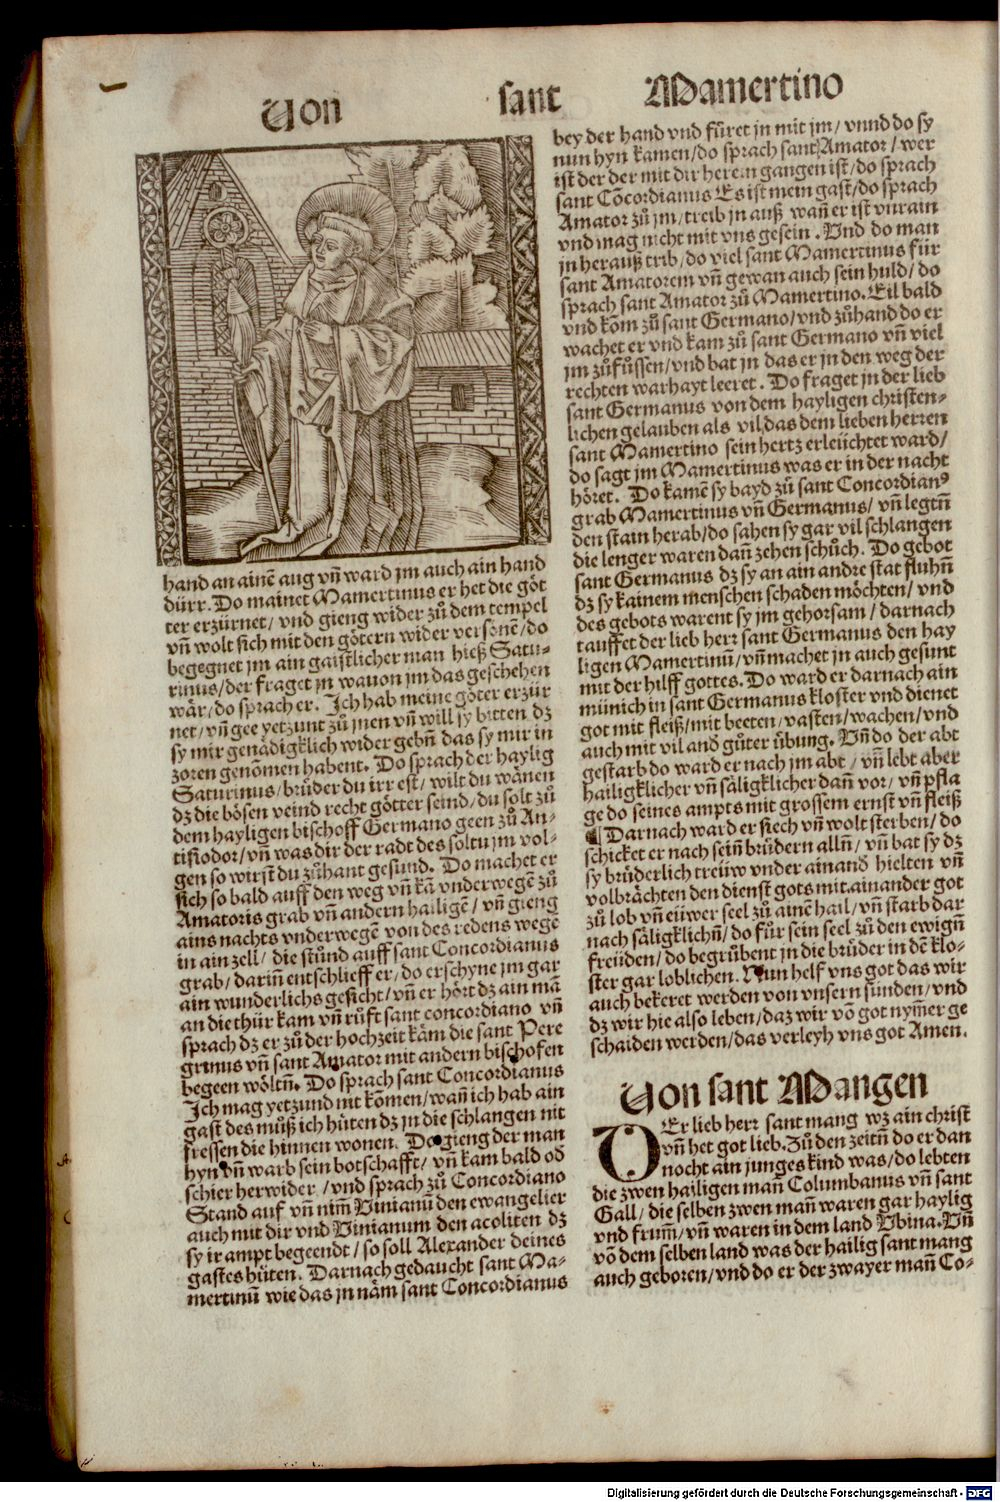 Von sant Mamertino
hand an ainē aug vn̄ ward jm auch ain hand
dürr. Do mainet Mamertinus er het die göt
ter erzürnet/ vnd gieng wider zů dem tempel
vn̄ wolt sich mit den göttern wider versonē/ do
begegnet jm ain gaistlicher man hieß Satu-
rinus/ der fraget jn wauon jm das geschehen
wär/ do sprach er. Ich hab meine göter erzür
net/ vn̄ gee yetzunt zů jnen vn̄ will sy bitten dz
sy mir genädigklich wider gebn̄ das sy mir in
zoren genōmen habent. Do sprach der haylig
Saturinus/ brůder du irrest/ wilt du wänen
dz die bösen veind recht götter seind/ du solt zů
dem hayligen bischoff Germano geen zů An-
tisiodor/ vn̄ was dir der radt des soltu jm vol-
gen so wirst du zůhant gesund. Do machet er
sich so bald auff den weg vn̄ kā vnderwegē zů
Amatoris grab vn̄ andern hailigē/ vn̄ gieng
ains nachts vnderwegē von des redens wegē
in ain zell/ die stůnd auff sant Concordianus
grab/ darin̄ entschlieff er/ do erschyne jm gar
ain wunderlichs gesicht/ vn̄ er hört dz ain mā
an die thür kam vn̄ růfft sant concordiano vn̄
sprach dz er zů der hochzeit käm die sant Pere
grinus vn̄ sant Amator mit andern bischofen
begeen wöltn̄. Do sprach sant Concordianus
Ich mag yetzund nit kōmen/ wan̄ ich hab ain
gast des můß ich hüten dz jn die schlangen nit
fressen die hinnen wonen. Do gieng der man
hyn vn̄ warb sein botschafft/ vn̄ kam bald od
schier herwider/ vnd sprach zů Concordiano
Stand auf vn̄ nim̄ Vinianū den ewangelier
auch mit dir vnd Vinianum den acoliten dz
sy ir ampt begeendt/ so soll Alexander deines
gastes hüten. Darnach gedaucht sant Ma-
mertinū wie das jn näm sant Concordianus
bey der hand vnd füret jn mit jm/ vnnd do sy
nun hyn kamen/ do sprach sant Amator/ wer
ist der der mit dir herein gangen ist/ do sprach
sant Cōcordianus Es ist mein gast/ do sprach
Amator zů jm/ treib jn auß wan̄ er ist vnrain
vnd mag nicht mit vns gesein. Vnd do man
jn herauß trib/ do viel sant Mamertinus für
sant Amatorem vn̄ gewan auch sein huld/ do
sprach sant Amator zů Mamertino. Eil bald
vnd kōm zů sant Germano/ vnd zůhand do er
wachet er vnd kam zů sant Germano vn̄ viel
jm zůfůssen/ vnd bat jn das er jn den weg der
rechten warhayt leeret. Do fraget jn der lieb
sant Germanus von dem hayligen christen-
lichen gelauben als vil/ das dem lieben herren
sant Mamertino sein hertz erleüchtet ward/
do sagt jm Mamertinus was er in der nacht
höret. Do kamē sy bayd zů sant Concordianꝰ
grab Mamertinus vn̄ Germanus/ vn̄ legtn̄
den stain herab/ do sahen sy gar vil schlangen
die lenger waren dan̄ zehen schůch. Do gebot
sant Germanus dz sy an ain andre stat fluhn̄
dz sy kainem menschen schaden möchten/ vnd
des gebots warent sy jm gehorsam/ darnach
tauffet der lieb herr sant Germanus den hay
ligen Mamertinū/ vn̄ machet jn auch gesunt
mit der hilff gottes. Do ward er darnach ain
münich in sant Germanus kloster vnd dienet
got mit fleiß/ mit beeten/ vasten/ wachen/ vnd
auch mit vil and̄ gůter übung. Vn̄ do der abt
gestarb do ward er nach jm abt/ vn̄ lebt aber
hailigklicher vn̄ säligklicher dan̄ vor/ vn̄ pfla
ge do seines ampts mit grossem ernst vn̄ fleiß
¶ Darnach ward er siech vn̄ wolt sterben/ do
schicket er nach sein̄ brüdern alln̄/ vn̄ bat sy dz
sy brüderlich treüw vnder ainand̄ hielten vn̄
volbrächten den dienst gots mit ainander got
zů lob vn̄ eüwer seel zů ainē hail/ vn̄ starb dar
nach säligklichn̄/ do fůr sein seel zů den ewign̄
freüden/ do begrůbent jn die brüder in dē klo-
ster gar loblichen. Nun helf vns got das wir
auch bekeret werden von vnsern sünden/ vnd
dz wir hie also leben/ daz wir vō got nym̄er ge
schaiden werden/ das verleyh vns got Amen.
Von sant Mangen
DEr lieb herr sant mang wz ain christ
vn̄ het got lieb. Zů den zeitn̄ do er dan
nocht ain junges kind was/ do lebten
die zwen hailigen man̄ Columbanus vn̄ sant
Gall/ die selben zwen man̄ waren gar haylig
vnd frum̄/ vn̄ waren in dem land Vbina. Vn̄
vō dem selben land was der hailig sant mang
auch geboren/ vnd do er der zwayer man̄ Co-
Digitalisierung gefördert durch die Deutsche Forschungsgemeinschaft - DFG